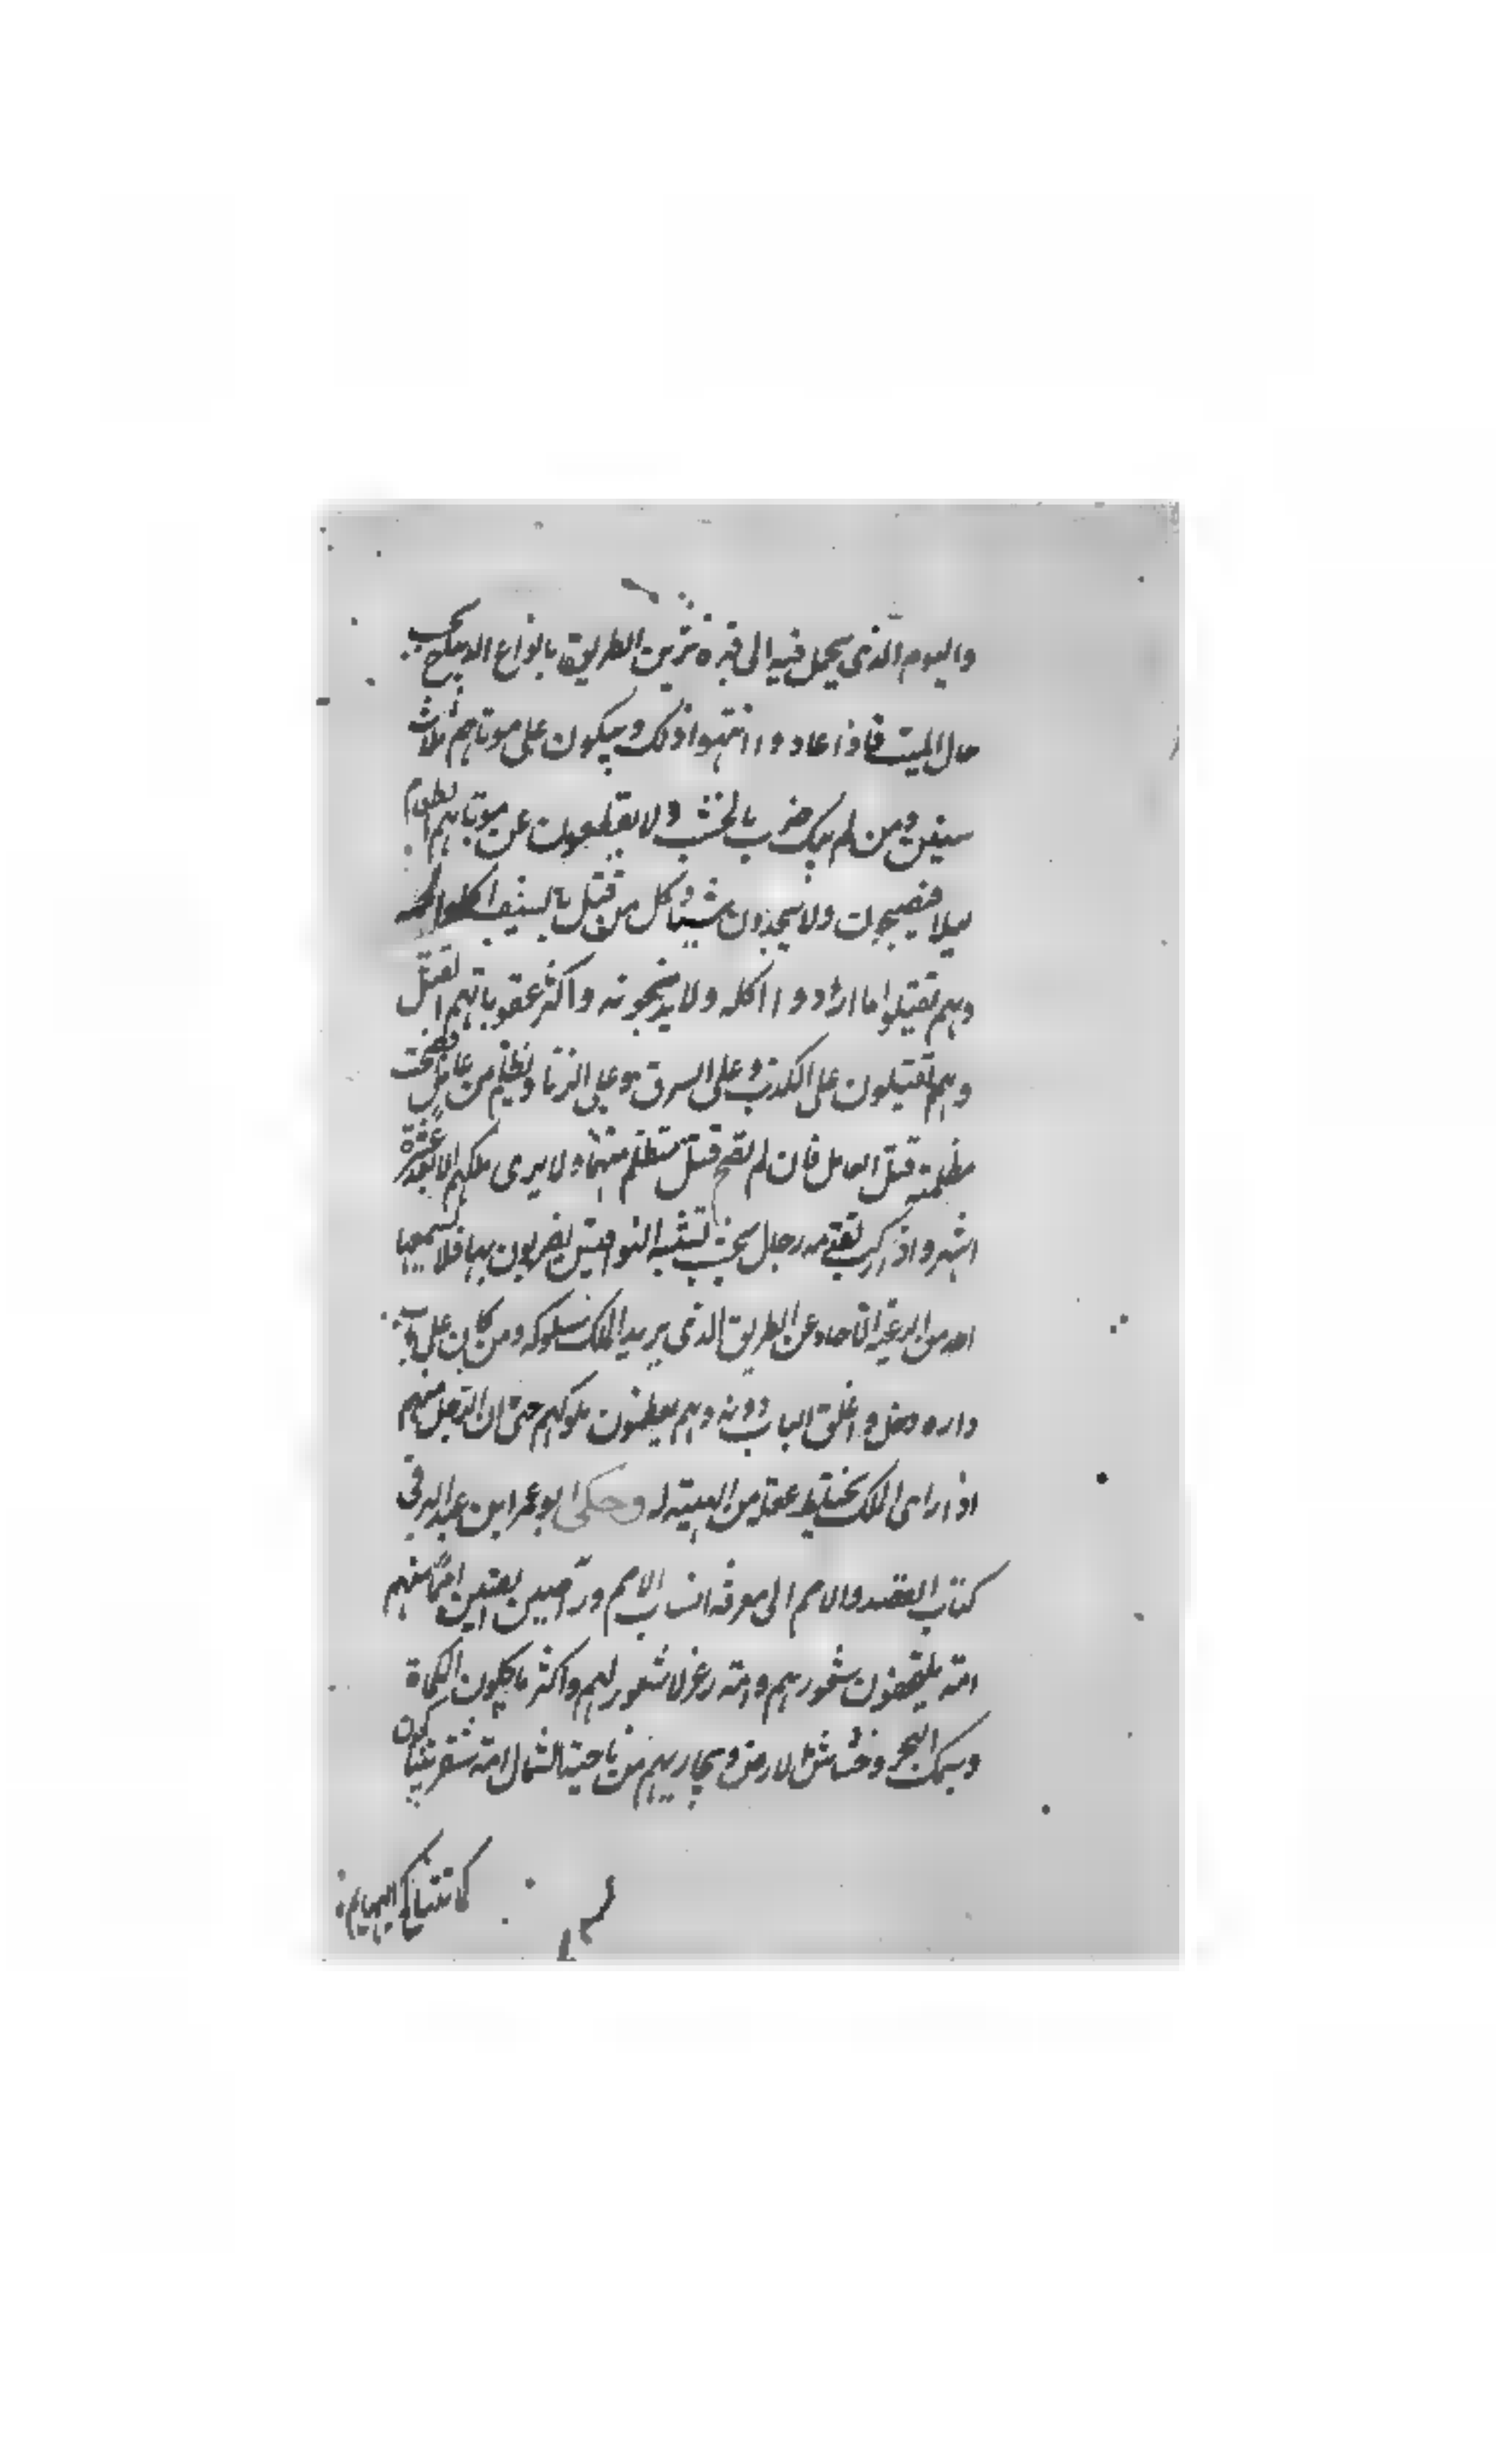 واليوم الذى يحمل فيه الى قبره تزين الطريق بانواع الديباج بحسب
حال الميت فاذا عادوا انتهبوا ذلك ويبكون على موتاهم ثلاث
سنين ومن لم يبك ضرب بالخشب ولا يقطعون عن موتاهم الطعام
ليلا فيصبحون ولا يجدون شيئا وكل من قتل بالسيف اكلوا لحمه
وهم يقتلوا ما ارادوا اكله ولا يذبحونه واكثر عقوباتهم القتل
وهم يقتلون على الكذب وعلى السرق وعلى الزنا ومن تظلم من عامل فصحت
مظلمته قتل العامل فان لم تصح قتل متظلم منها ولا يرى ملكهم الا بعد عشرة
اشهر واذا ركب تقدمه رجل بخشب تشبه النواقيس يضربون بها فلا يسمعها
احد من الرعية الا حاد عن الطريق الذى يريد الملك سلوكه ومن كان على باب
داره دخل واغلق الباب دونه وهم يعظمون ملوكهم حتى ان الرجل منهم
اذا راى الملك يختلط عقله من الهيبة له وحكى ابو عمر ابن عبد البر فى
كتاب القصد والامم الى معرفة انساب الامم ورآ الصين امم منهم
امة يلتحفون شعورهم وامة زعر لا شعور لهم واكثر ما ياكلون الكماة
وسمك البحر وخشاش الارض ويجاريهم من ناحية الشمال امة شقر يتناكحون
كما تتناكح البهايم